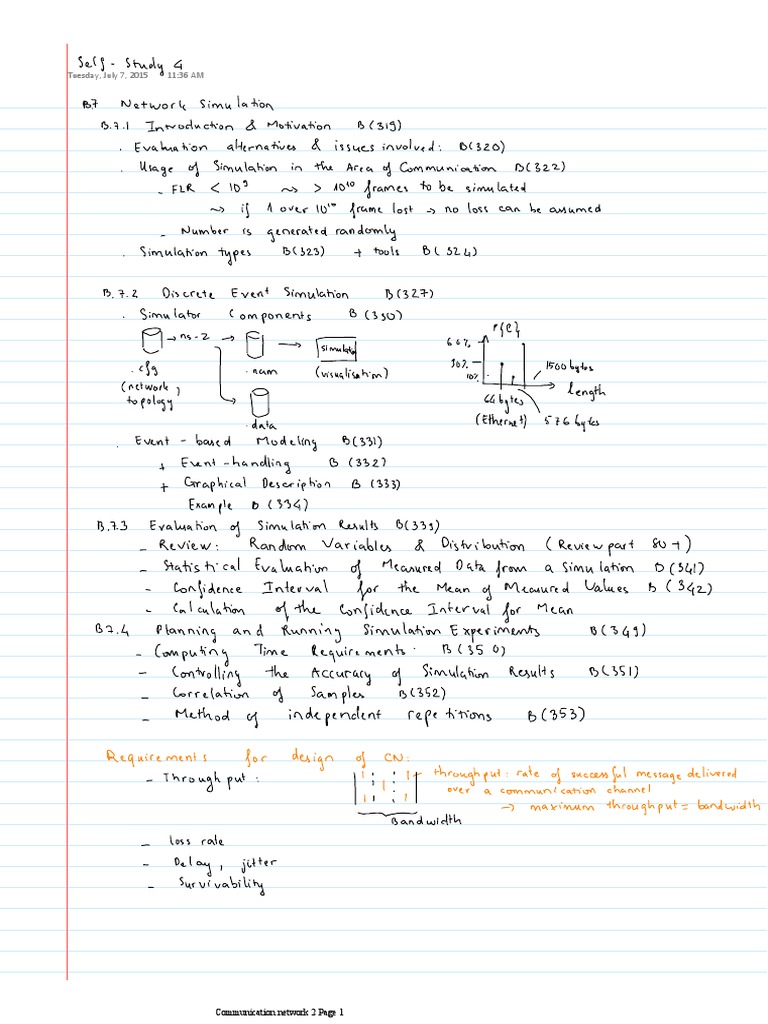 Self - Study 4
Tuesday, July 7, 2015 11:36 AM
B.7 Network Simulation
B.7.1 Introduction & Motivation B(319)
. Evaluation alternatives & issues involved: B(320)
. Usage of Simulation in the Area of Communication B(322)
- FLR < 10^9 ⇝ > 10^10 frames to be simulated
⇝ if 1 over 10^10 frame lost → no loss can be assumed
- Number is generated randomly
. Simulation types B(323) + tools B(324)
B.7.2 Discrete Event Simulation B(327)
. Simulator Components B(330)
→ ns-2 → → simulator
. cfg . nam (visualisation)
(network topology)
. data
60% 30% 10%
1500 bytes
length
64 bytes
(Ethernet) 576 bytes
. Event - based Modeling B(331)
+ Event-handling B(332)
+ Graphical Description B(333)
Example B(334)
B.7.3 Evaluation of Simulation Results B(339)
- Review: Random Variables & Distribution (Review part SU 1)
- Statistical Evaluation of Measured Data from a Simulation B(341)
- Confidence Interval for the Mean of Measured Values B(342)
- Calculation of the Confidence Interval for Mean
B7.4 Planning and Running Simulation Experiments B(349)
- Computing Time Requirements. B(350)
- Controlling the Accuracy of Simulation Results B(351)
- Correlation of Samples B(352)
- Method of independent repetitions B(353)
Requirements for design of CN:
- Throughput:
throughput: rate of successful message delivered
over a communication channel
→ maximum throughput = bandwidth
Bandwidth
- loss rate
- Delay, jitter
- Survivability
Communication network 2 Page 1